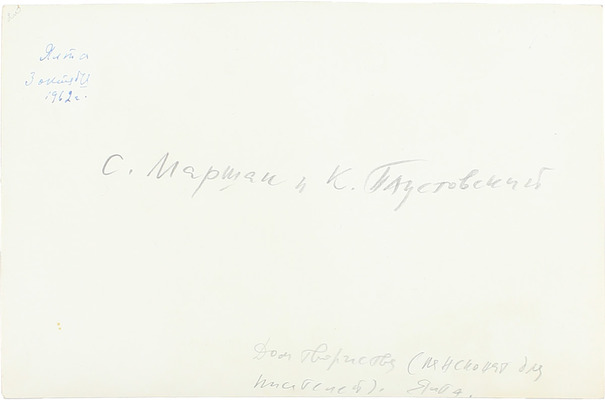 Ялта
3 октября
1962 г.
С. Маршак и К. Паустовский
Дом творчества (пансионат для
писателей). Ялта.